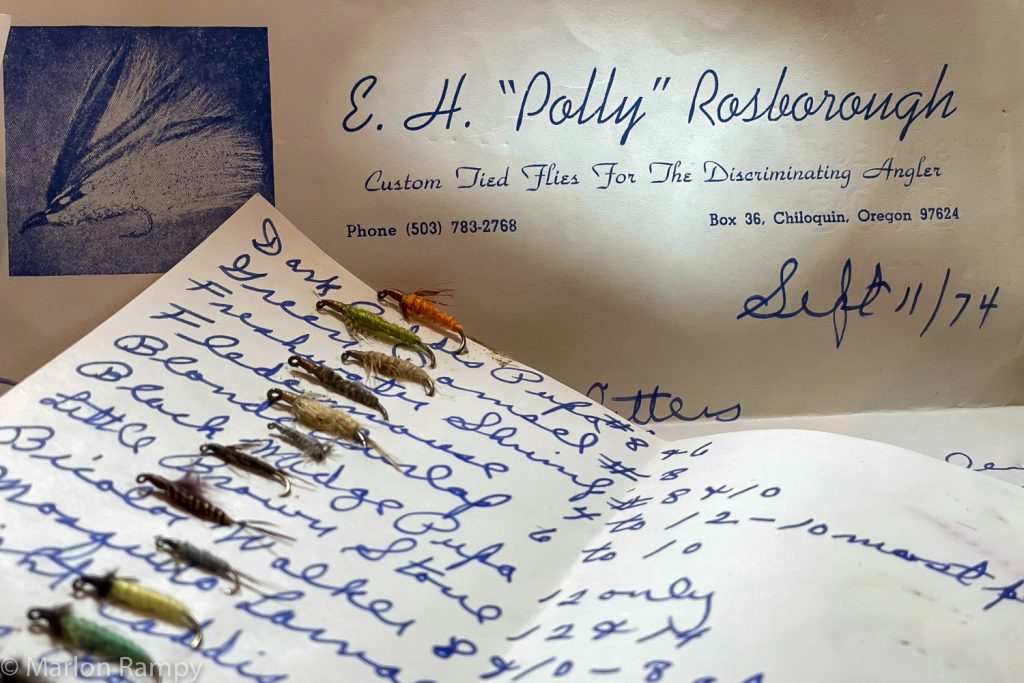 E. H. "Polly" Rosborough
Custom Tied Flies For The Discriminating Angler
Phone (503) 783-2768
Box 36, Chiloquin, Oregon 97624
Sept 11/74
Dark Pupa #8
Green Damsel #6
Freshwater Shrimp # 8
Fledermouse # 8 & 10
Blond Burlap 4 to 12 - 10 most
Black Midge Pupa 6 to 10
Little Brown Stone 12 only
Bicolor Walker 12 & 14
Mosquito Larva 8 & 10 -
Light Caddis
© Marlon Rampy